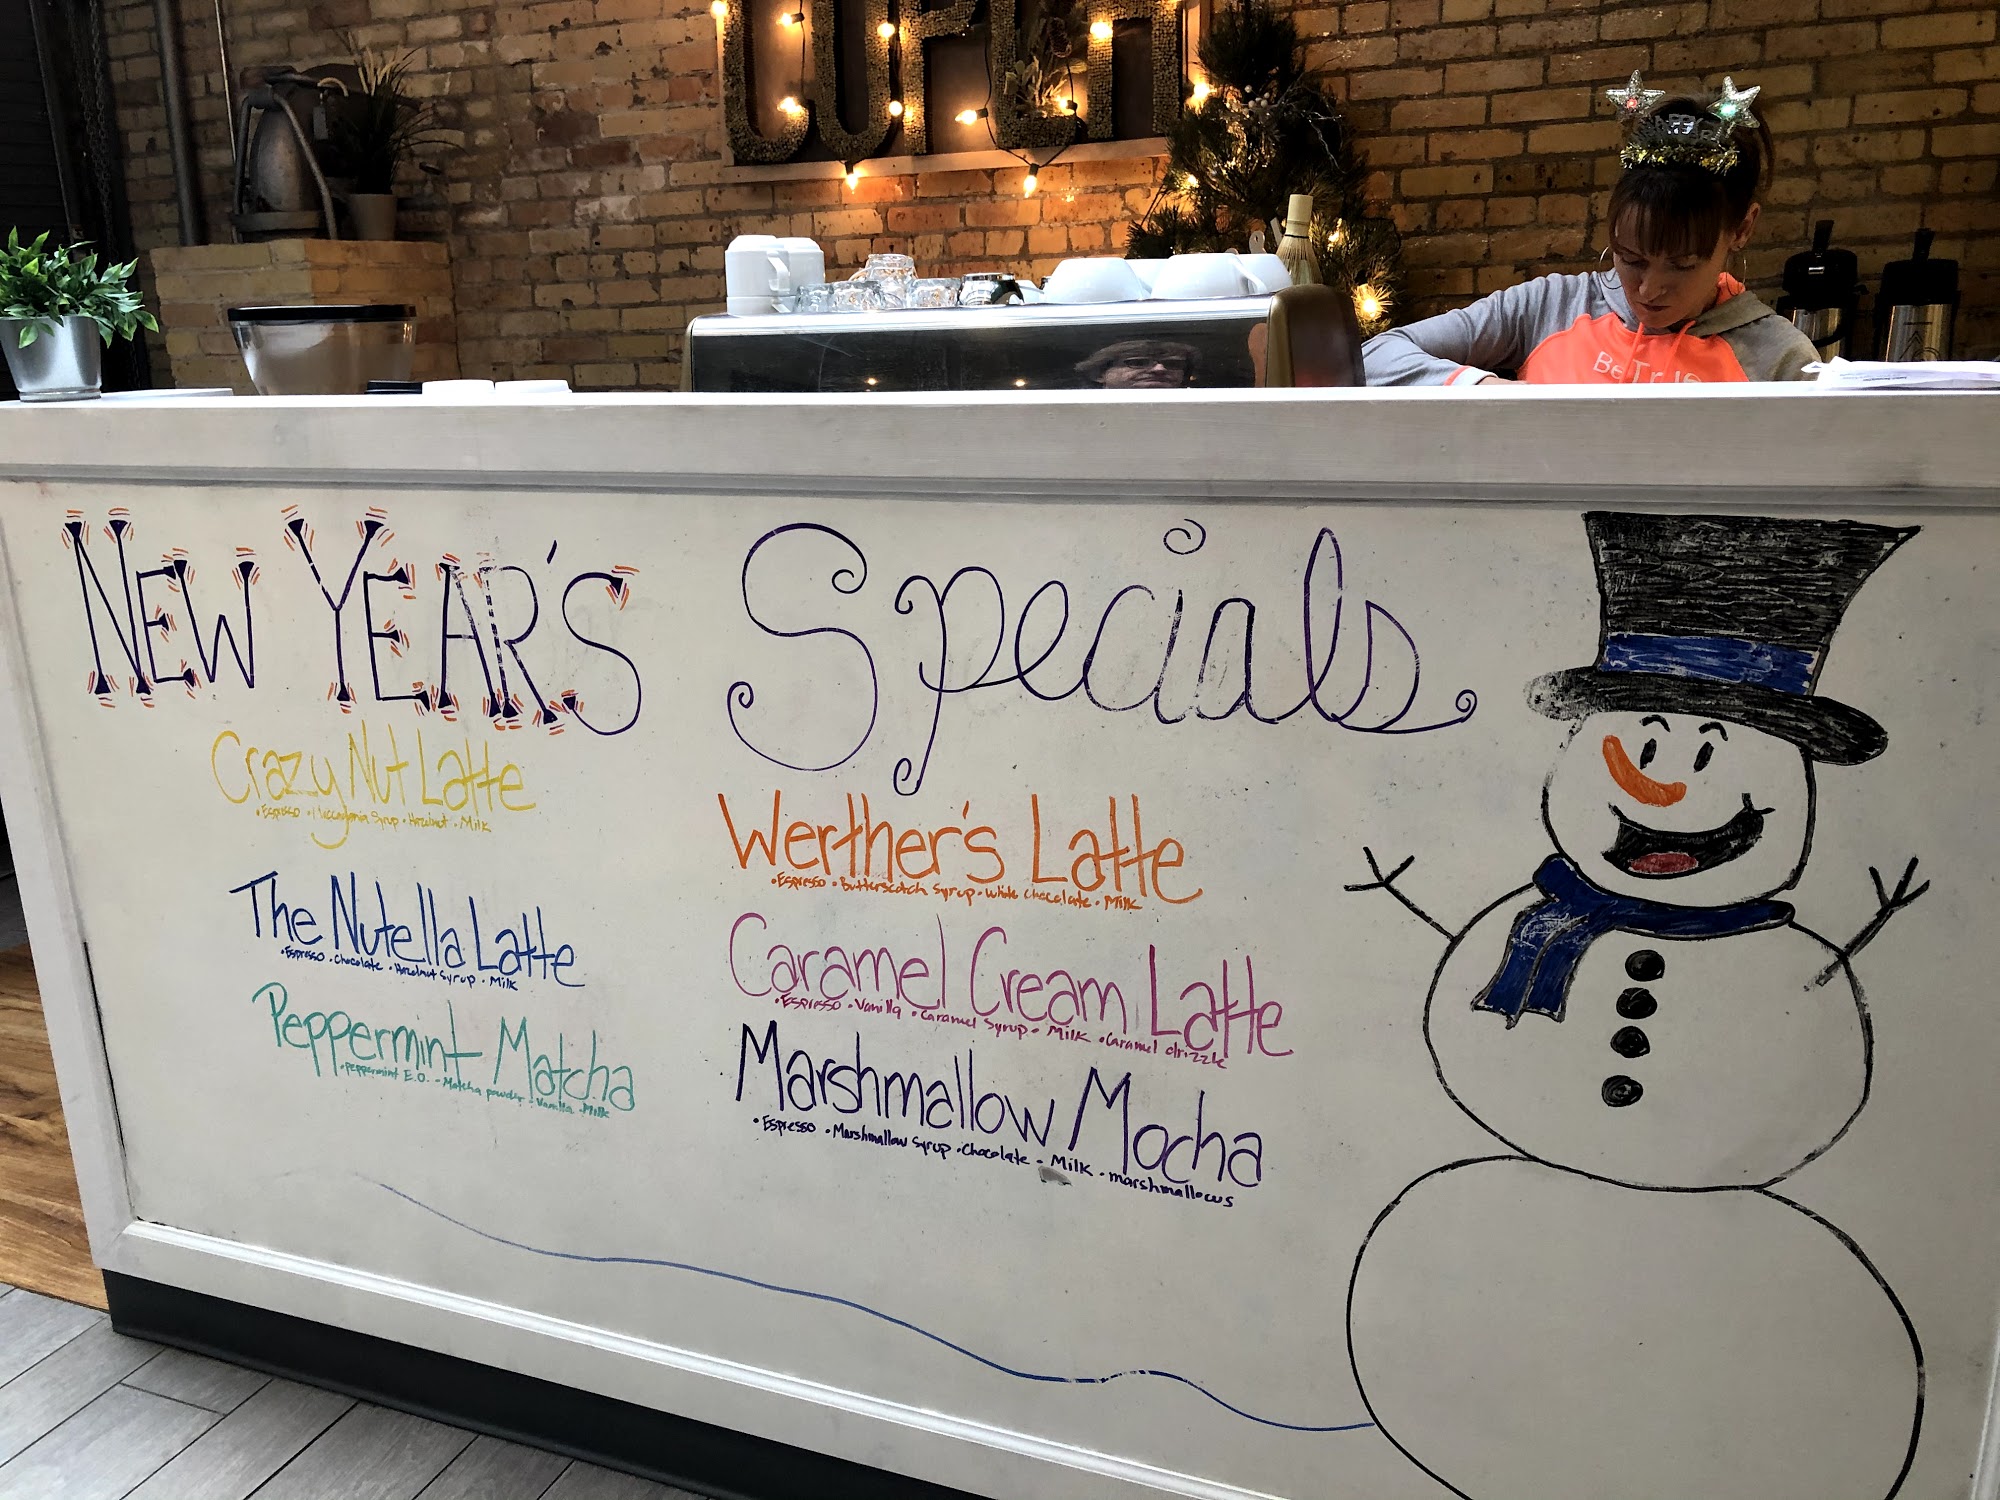 HAPPY
Be True
NEW YEAR'S Specials
Crazy Nut Latte
• Espresso • Maccadamia Syrup • Hazelnut • Milk
The Nutella Latte
• Espresso • Chocolate • Hazelnut Syrup • Milk
Peppermint Matcha
• Peppermint E.O. • Matcha powder • Vanilla • Milk
Werther's Latte
• Espresso • Butterscotch Syrup • White Chocolate • Milk
Caramel Cream Latte
• Espresso • Vanilla • Caramel Syrup • Milk • Caramel drizzle
Marshmallow Mocha
• Espresso • Marshmallow Syrup • Chocolate • Milk • marshmallows